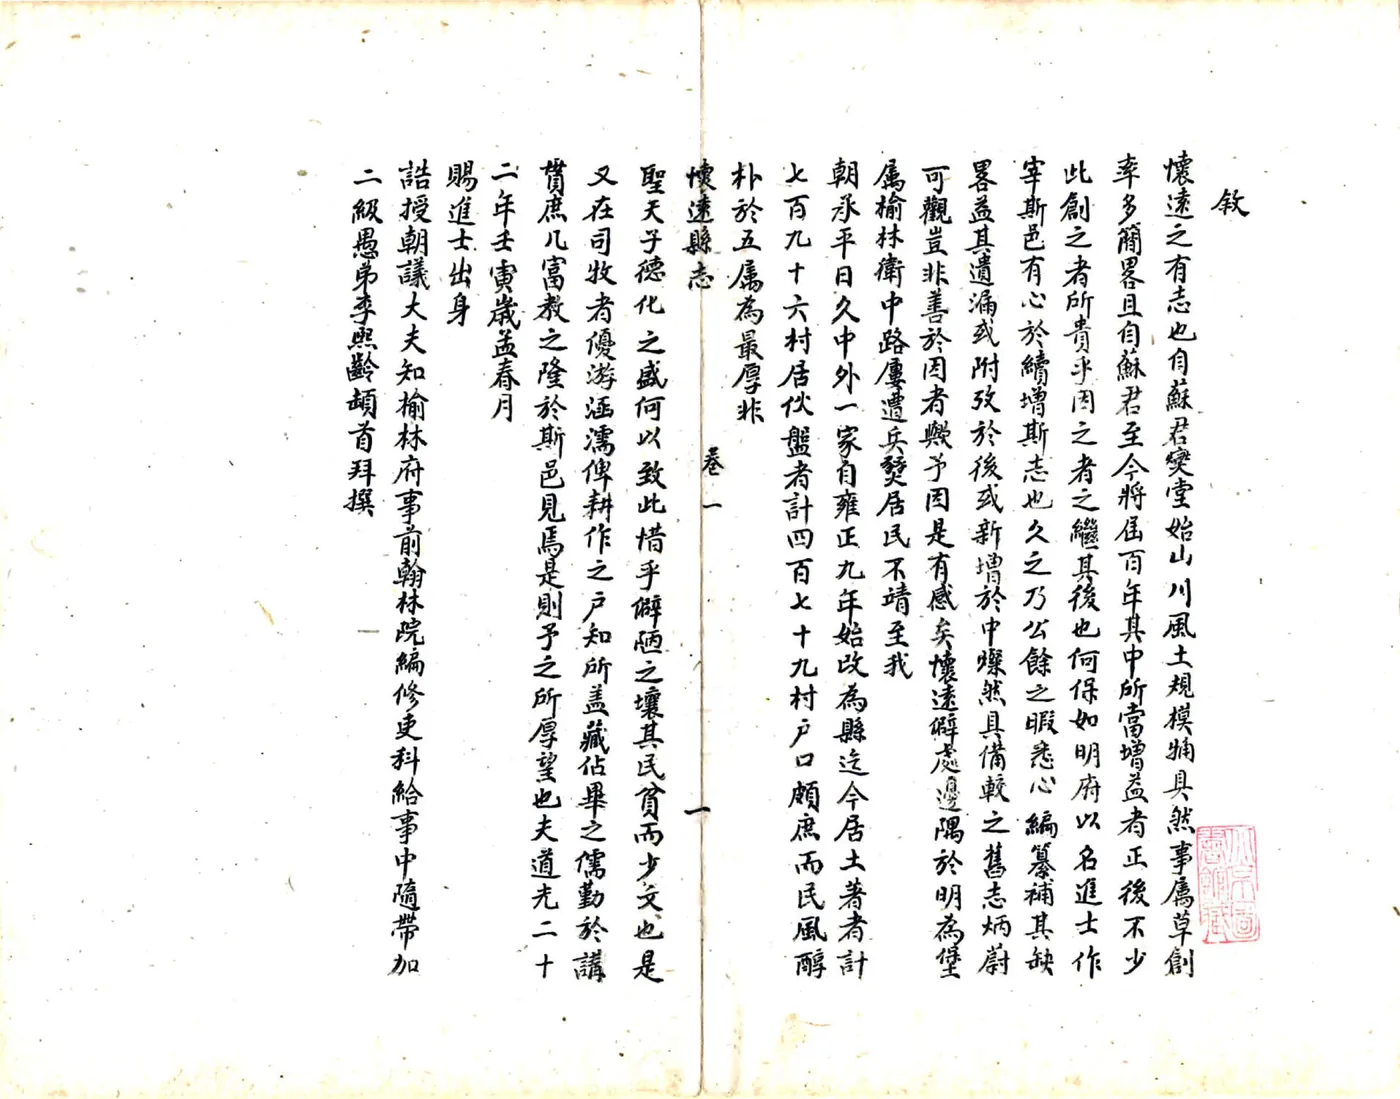 敘
懷遠之有志也自蘇君燮堂始山川風土規模觕具然事属草創
率多簡畧且自蘇君至今將届百年其中所當增益者正後不少
此創之者所貴乎因之者之繼其後也何保如明府以名進士作
宰斯邑有心於續增斯志也久之乃公餘之暇悉心編纂補其缺
畧益其遺漏或附攷於後或新增於中燦然具備較之舊志炳蔚
可觀豈非善於因者歟予因是有感矣懷遠僻處邊隅於明為堡
属榆林衛中路屢遭兵燹居民不靖至我
朝承平日久中外一家自雍正九年始改為縣迄今居土著者計
七百九十六村居伙盤者計四百七十九村户口頗庶而民風醇
朴於五属為最厚非
懷遠縣志
卷一
一
聖天子德化之盛何以致此惜乎僻陋之壤其民貧而少文也是
又在司牧者優游涵濡俾耕作之户知所盖藏佔畢之儒勤於講
貫庶几富教之隆於斯邑見焉是則予之所厚望也夫道光二十
二年壬寅歲孟春月
賜進士出身
誥授朝議大夫知榆林府事前翰林院編修吏科給事中隨帶加
二級愚弟李熙齡頓首拜撰